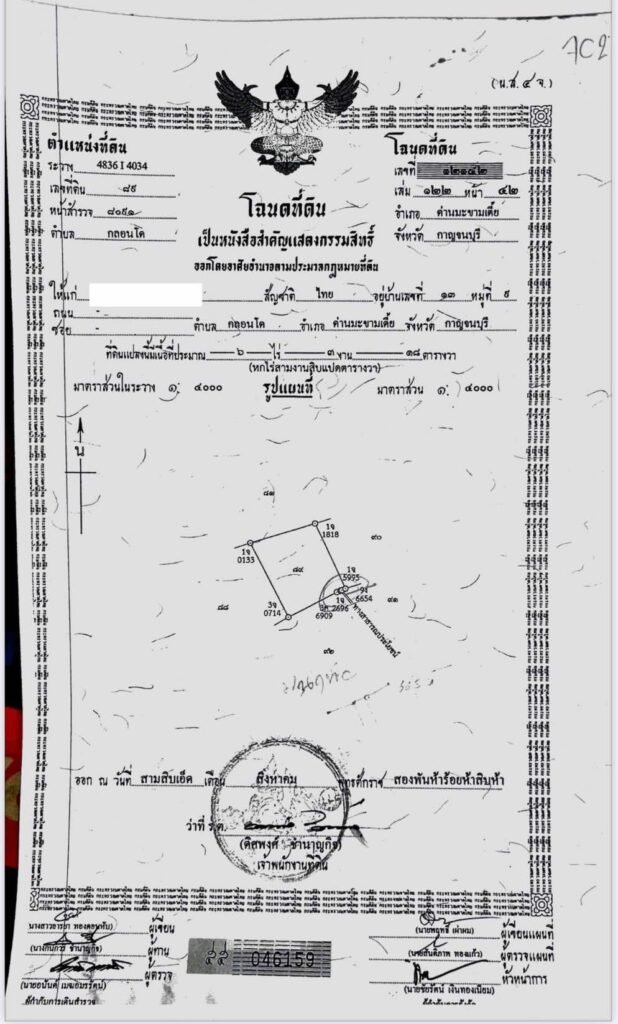 (น.ส.๔ จ.)
ตำแหน่งที่ดิน
ระวาง 4836 I 4034
เลขที่ดิน ๘๙
หน้าสำรวจ ๘๐๙๑
ตำบล กลอนโด
โฉนดที่ดิน
เลขที่ ๑๒๑๔๒
เล่ม ๑๒๒ หน้า ๔๒
อำเภอ ด่านมะขามเตี้ย
จังหวัด กาญจนบุรี
โฉนดที่ดิน
เป็นหนังสือสำคัญแสดงกรรมสิทธิ์
ออกโดยอาศัยอำนาจตามประมวลกฎหมายที่ดิน
ให้แก่ สัญชาติ ไทย อยู่บ้านเลขที่ ๑๓ หมู่ที่ ๙
ถนน -
ซอย - ตำบล กลอนโด อำเภอ ด่านมะขามเตี้ย จังหวัด กาญจนบุรี
ที่ดินแปลงนี้มีเนื้อที่ประมาณ ๖ ไร่ ๓ งาน ๑๘ ตารางวา
(หกไร่สามงานสิบแปดตารางวา)
มาตราส่วนในระวาง ๑: ๔๐๐๐ รูปแผนที่ มาตราส่วน ๑: ๔๐๐๐
น
๘๑
1จ 1818
๙๐
1จ 0133
๘๙
1จ 5995
๘๘
3จ 0714
6909
1จ 2696
6654
๙๑
ทางสาธารณประโยชน์
๙๒
ออก ณ วันที่ สามสิบเอ็ด เดือน สิงหาคม พุทธศักราช สองพันห้าร้อยห้าสิบห้า
ว่าที่ ร.ต.
(ดิสพงศ์ ชำนาญกิจ)
เจ้าพนักงานที่ดิน
ผู้เขียน
ผู้ทาน
ผู้ตรวจ
046159
ผู้เขียนแผนที่
ผู้ตรวจแผนที่
หัวหน้าการ